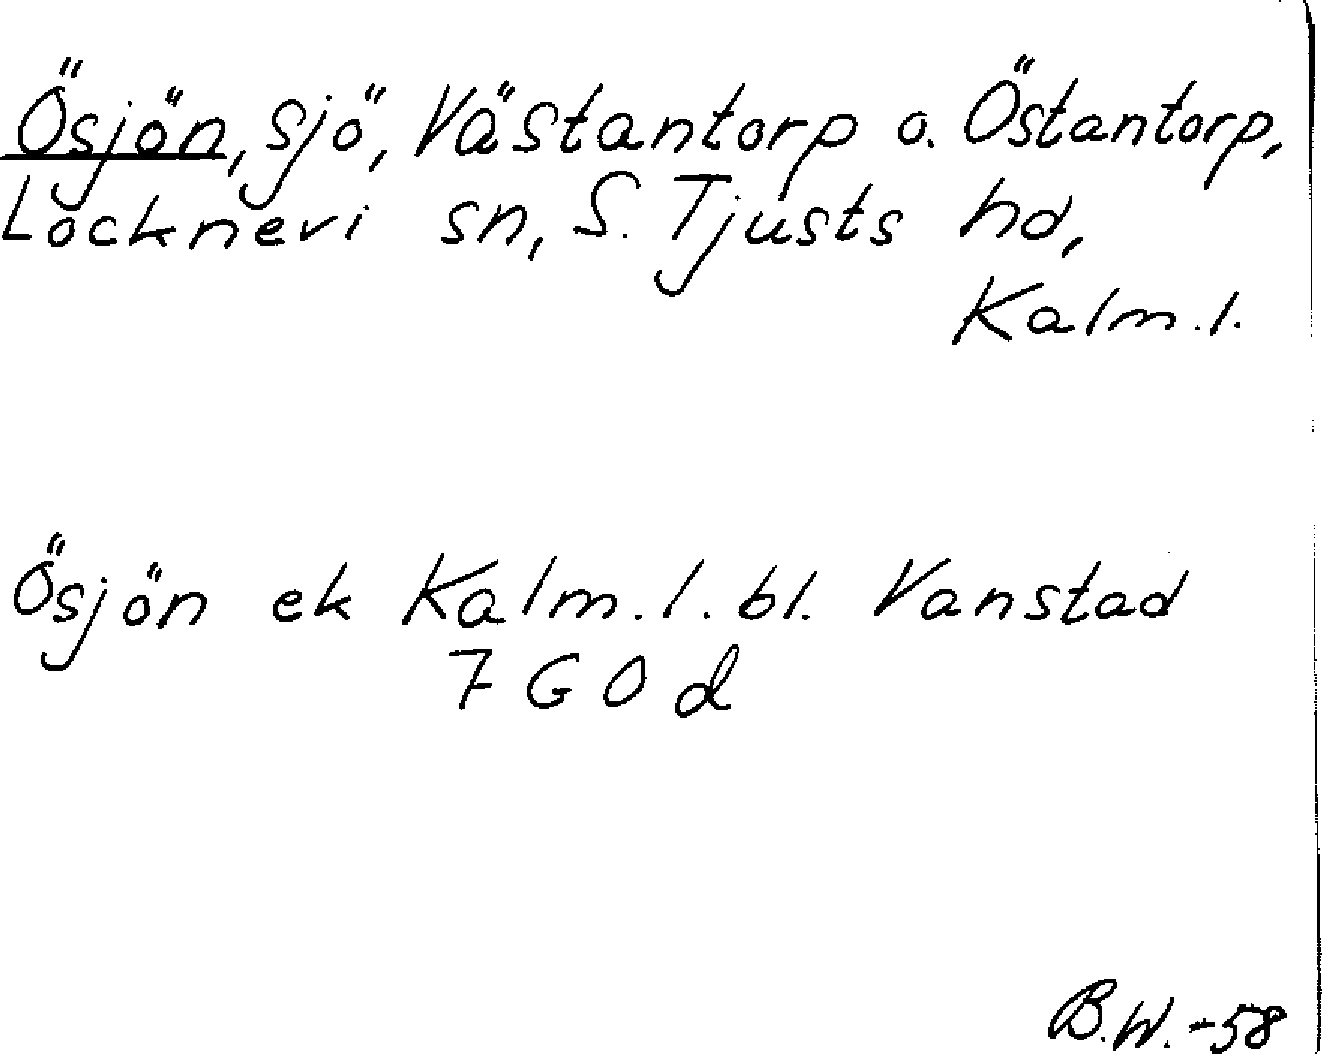 Ösjön, sjö, Västantorp o. Östantorp,
Locknevi sn, S. Tjusts hd,
Kalm.l.
Ösjön ek Kalm.l.bl. Vanstad
7 G O d
B.W.-58